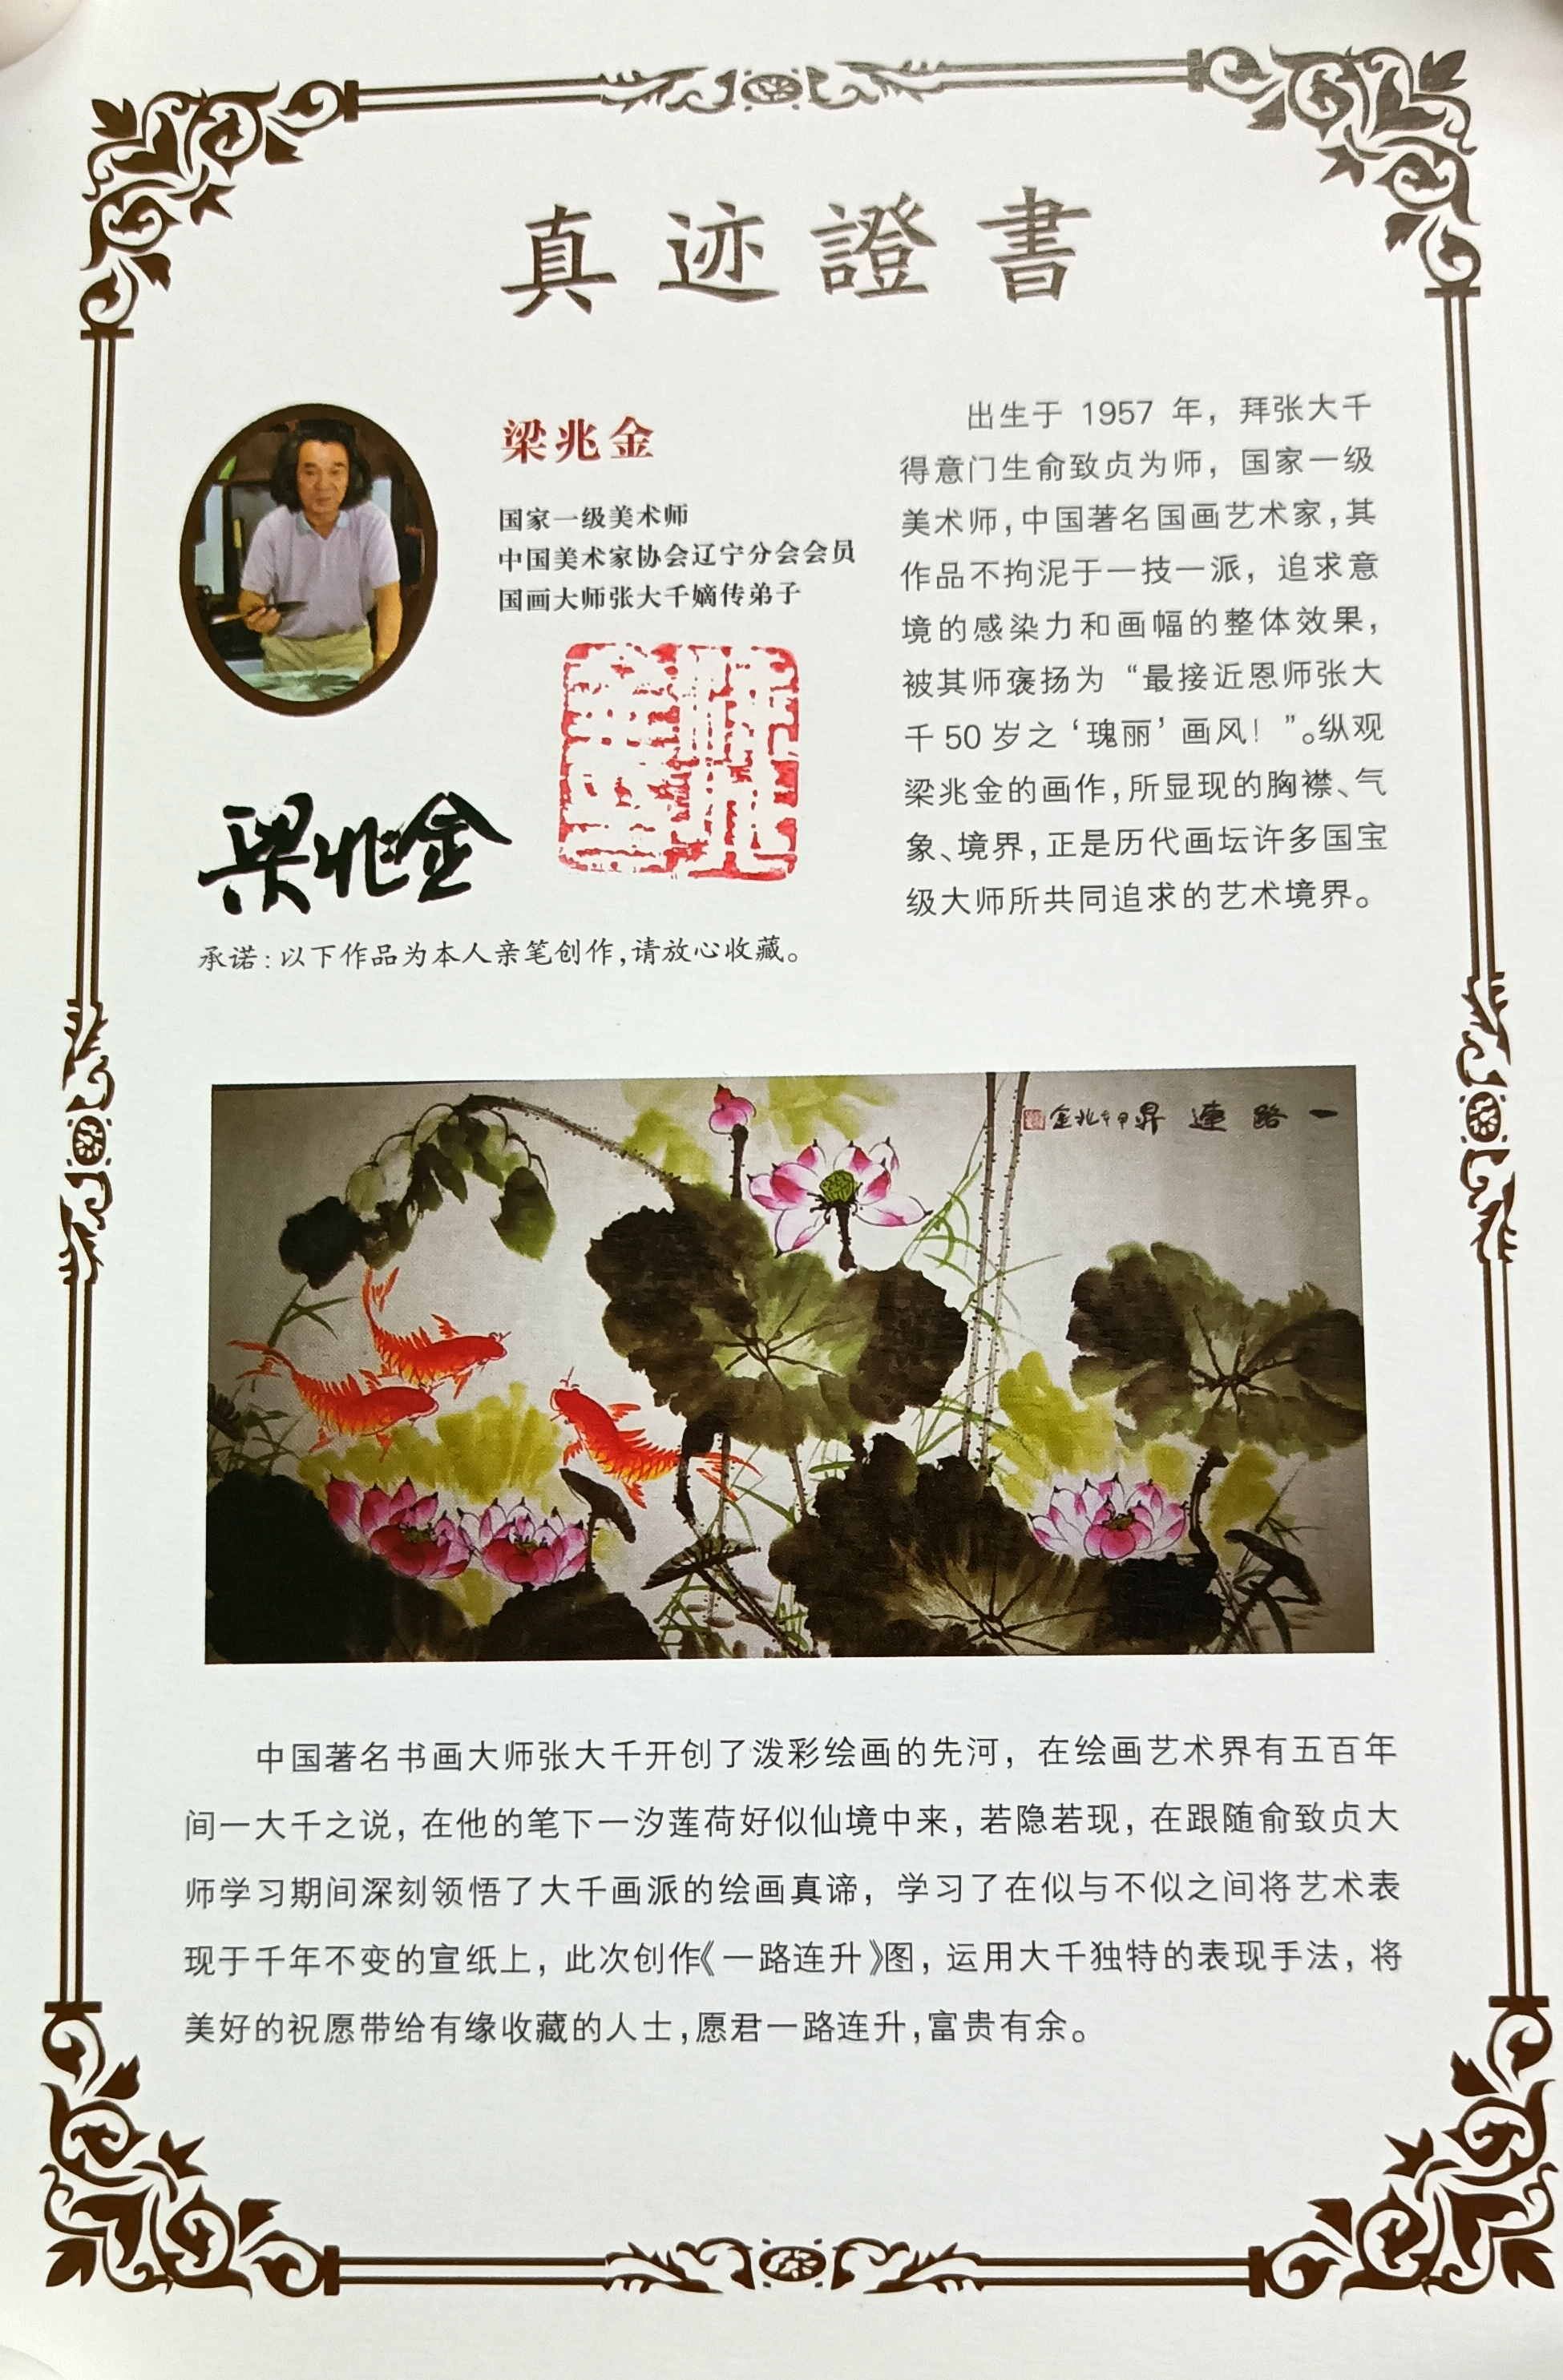 真迹證書
梁兆金
国家一级美术师
中国美术家协会辽宁分会会员
国画大师张大千嫡传弟子
梁兆金
承诺：以下作品为本人亲笔创作，请放心收藏。
出生于 1957 年，拜张大千
得意门生俞致贞为师，国家一级
美术师，中国著名国画艺术家，其
作品不拘泥于一技一派，追求意
境的感染力和画幅的整体效果，
被其师褒扬为“最接近恩师张大
千50岁之‘瑰丽’画风！”。纵观
梁兆金的画作，所显现的胸襟、气
象、境界，正是历代画坛许多国宝
级大师所共同追求的艺术境界。
一路連昇 甲午兆金
中国著名书画大师张大千开创了泼彩绘画的先河，在绘画艺术界有五百年
间一大千之说，在他的笔下一汐莲荷好似仙境中来，若隐若现，在跟随俞致贞大
师学习期间深刻领悟了大千画派的绘画真谛，学习了在似与不似之间将艺术表
现于千年不变的宣纸上，此次创作《一路连升》图，运用大千独特的表现手法，将
美好的祝愿带给有缘收藏的人士，愿君一路连升，富贵有余。